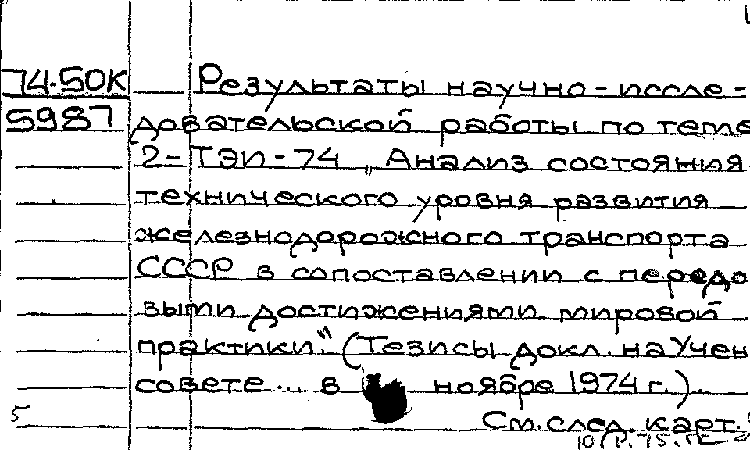 74.50К Результаты научно-иссле-
5987 довательской работы по теме
2-ТЭИ-74 „Анализ состояния
технического уровня развития
железнодорожного транспорта
СССР в сопоставлении с передо
выми достижениями мировой
практики" (Тезисы докл. на Учен
совете... в ноябре 1974 г.).
5 См. след. карт.